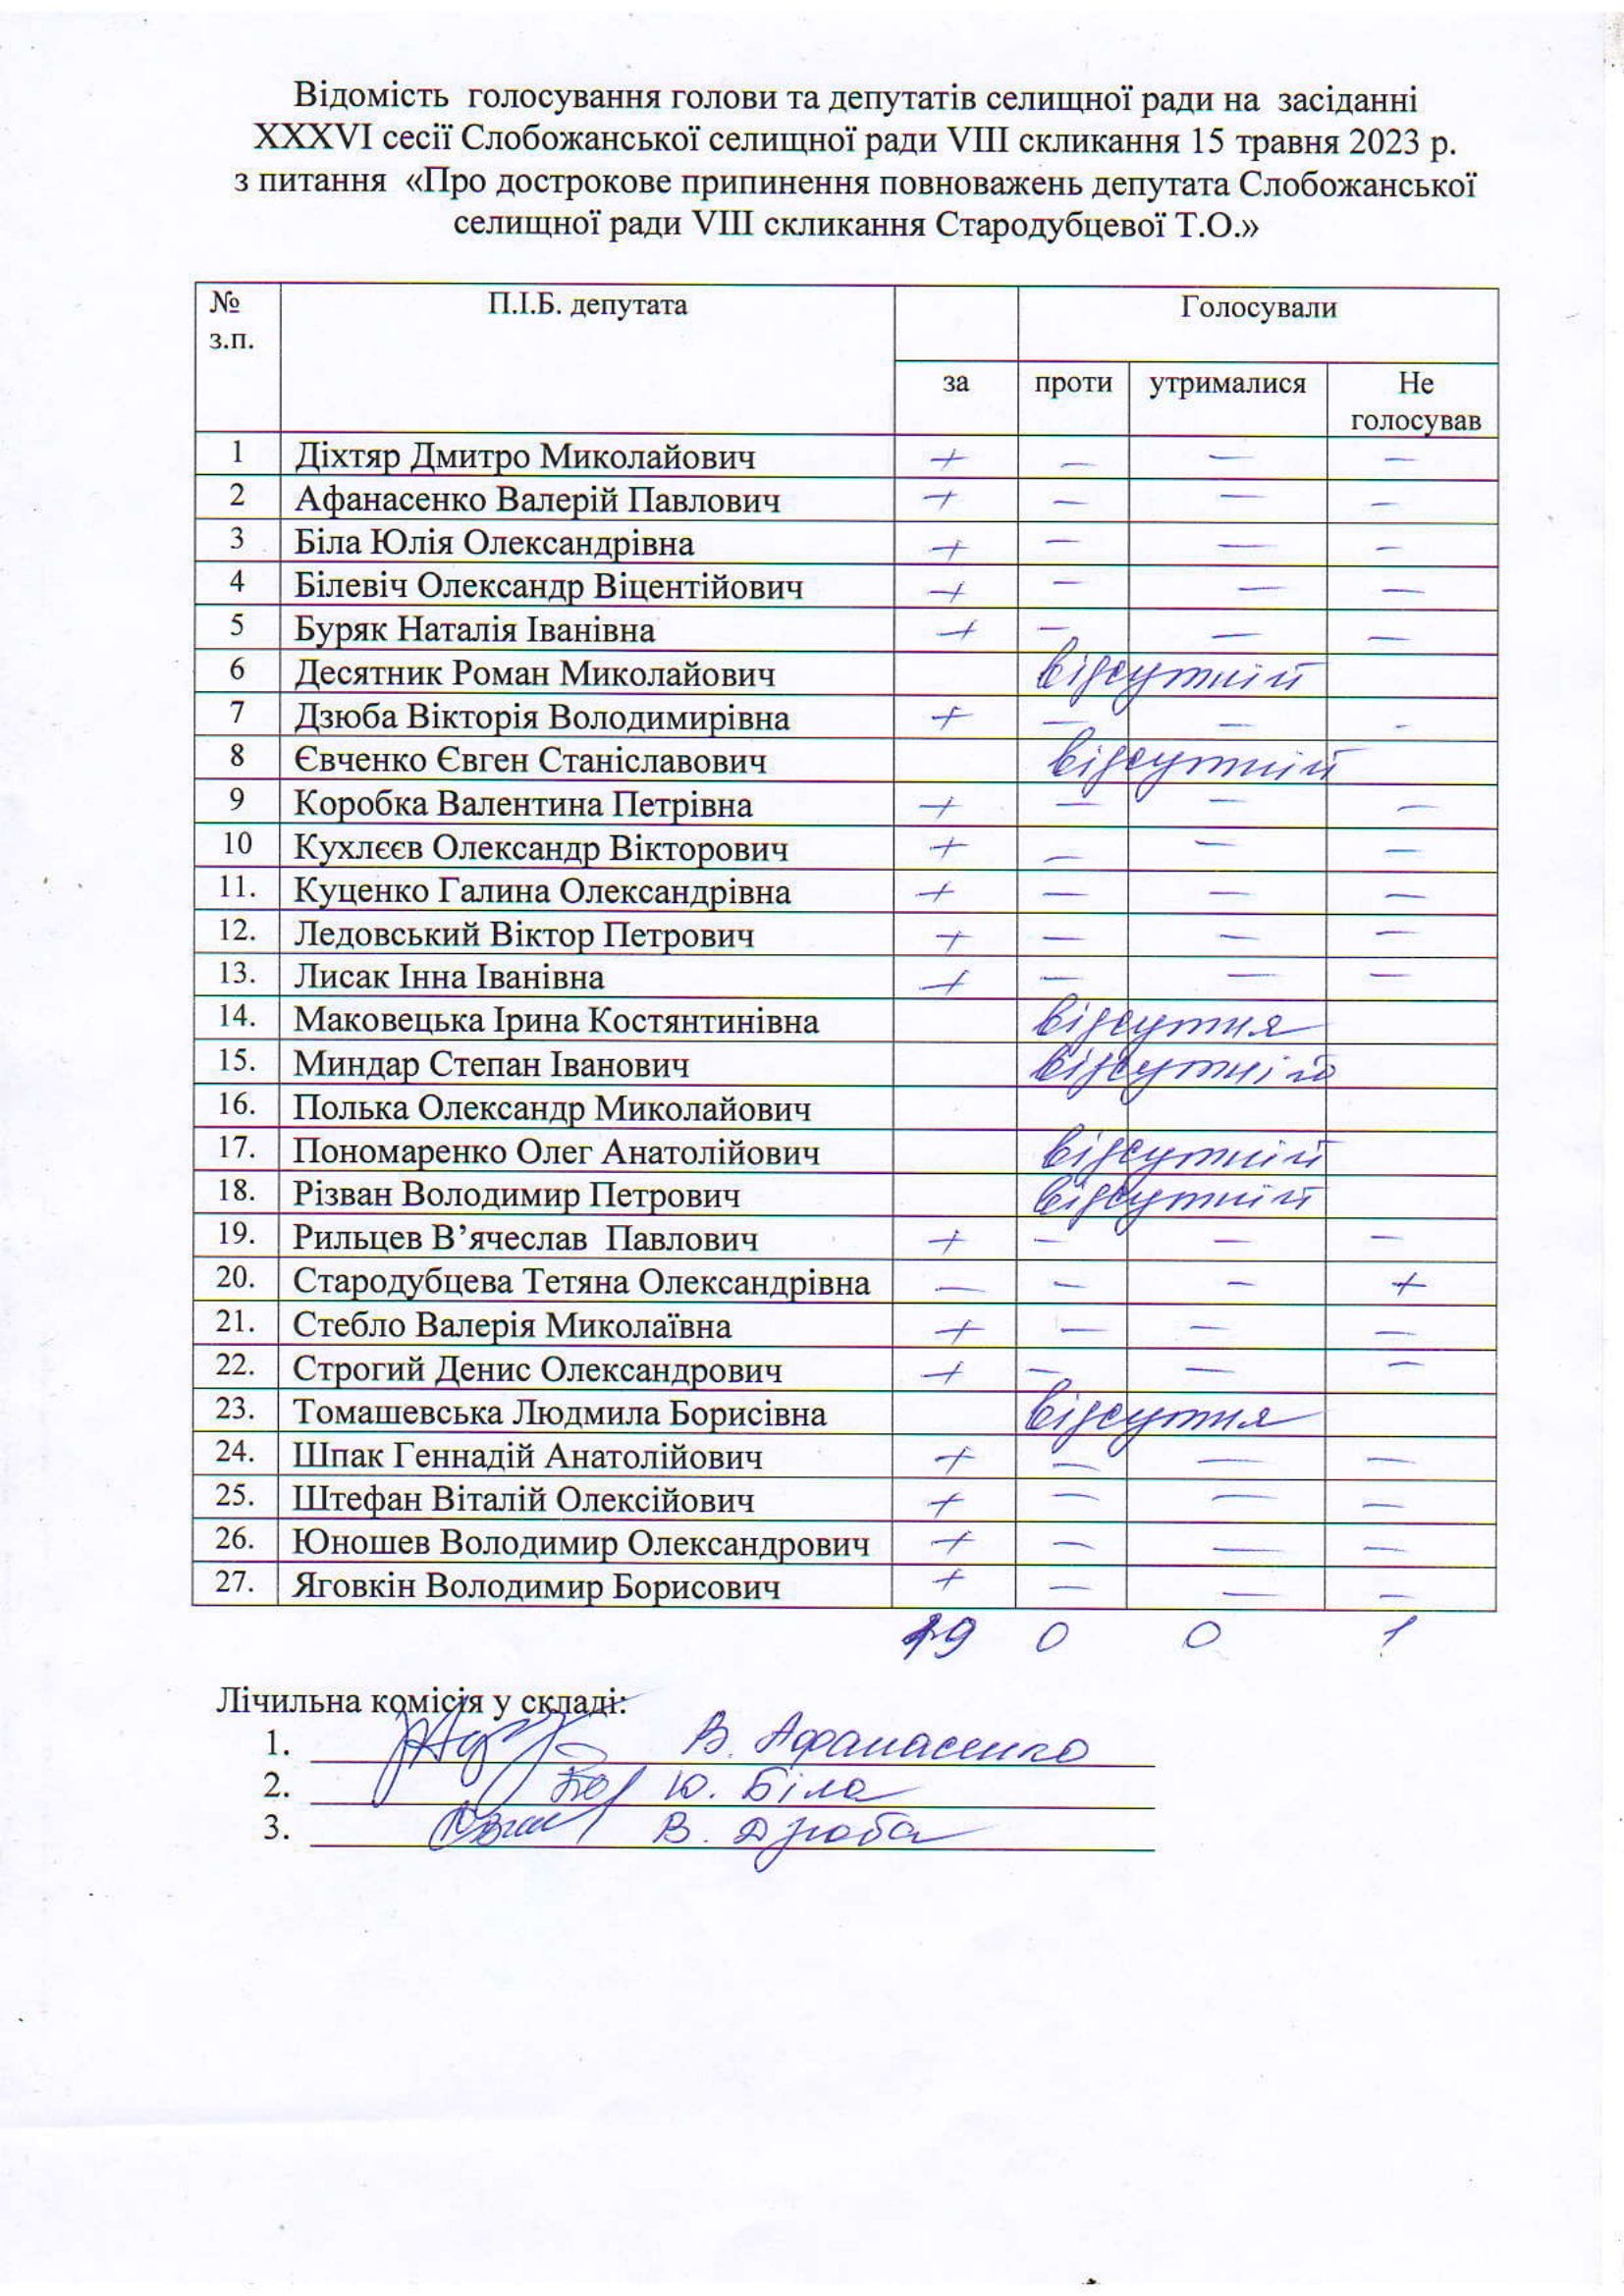 Відомість голосування голови та депутатів селищної ради на засіданні
XXXVI сесії Слобожанської селищної ради VIII скликання 15 травня 2023 р.
з питання «Про дострокове припинення повноважень депутата Слобожанської
селищної ради VIII скликання Стародубцевої Т.О.»
№ з.п. П.І.Б. депутата Голосували
за проти утрималися Не голосував
1 Діхтяр Дмитро Миколайович + — — —
2 Афанасенко Валерій Павлович + — — —
3 Біла Юлія Олександрівна + — — —
4 Білевіч Олександр Віцентійович + — — —
5 Буряк Наталія Іванівна + — — —
6 Десятник Роман Миколайович відсутній
7 Дзюба Вікторія Володимирівна + — — -
8 Євченко Євген Станіславович відсутній
9 Коробка Валентина Петрівна + — — —
10 Кухлєєв Олександр Вікторович + — — —
11. Куценко Галина Олександрівна + — — —
12. Ледовський Віктор Петрович + — — —
13. Лисак Інна Іванівна + — — —
14. Маковецька Ірина Костянтинівна відсутня
15. Миндар Степан Іванович відсутній
16. Полька Олександр Миколайович
17. Пономаренко Олег Анатолійович відсутній
18. Різван Володимир Петрович відсутній
19. Рильцев В’ячеслав Павлович + — — —
20. Стародубцева Тетяна Олександрівна — — — +
21. Стебло Валерія Миколаївна + — — —
22. Строгий Денис Олександрович + — — —
23. Томашевська Людмила Борисівна відсутня
24. Шпак Геннадій Анатолійович + — — —
25. Штефан Віталій Олексійович + — — —
26. Юношев Володимир Олександрович + — — —
27. Яговкін Володимир Борисович + — — —
19 0 0 1
Лічильна комісія у складі:
1. В. Афанасенко
2. Ю. Біла
3. В. Дзюба